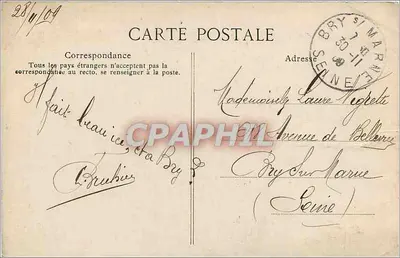 28/11/09
CARTE POSTALE
Correspondance
Tous les pays étrangers n'acceptent pas la
correspondance au recto, se renseigner à la poste.
Adresse
BRY S/ MARNE
30 -11
SEINE
Il fait beau ici, et a Bry ?
Mademoiselle Laure
Avenue de Bellevue
Bry sur Marne
(Seine)
CPARAMA